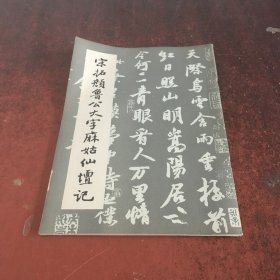 天際烏雲含雨重樓前
紅日照山明嵩陽居士
今何在青眼看人萬里情
宋拓顏魯公大字麻姑仙壇記